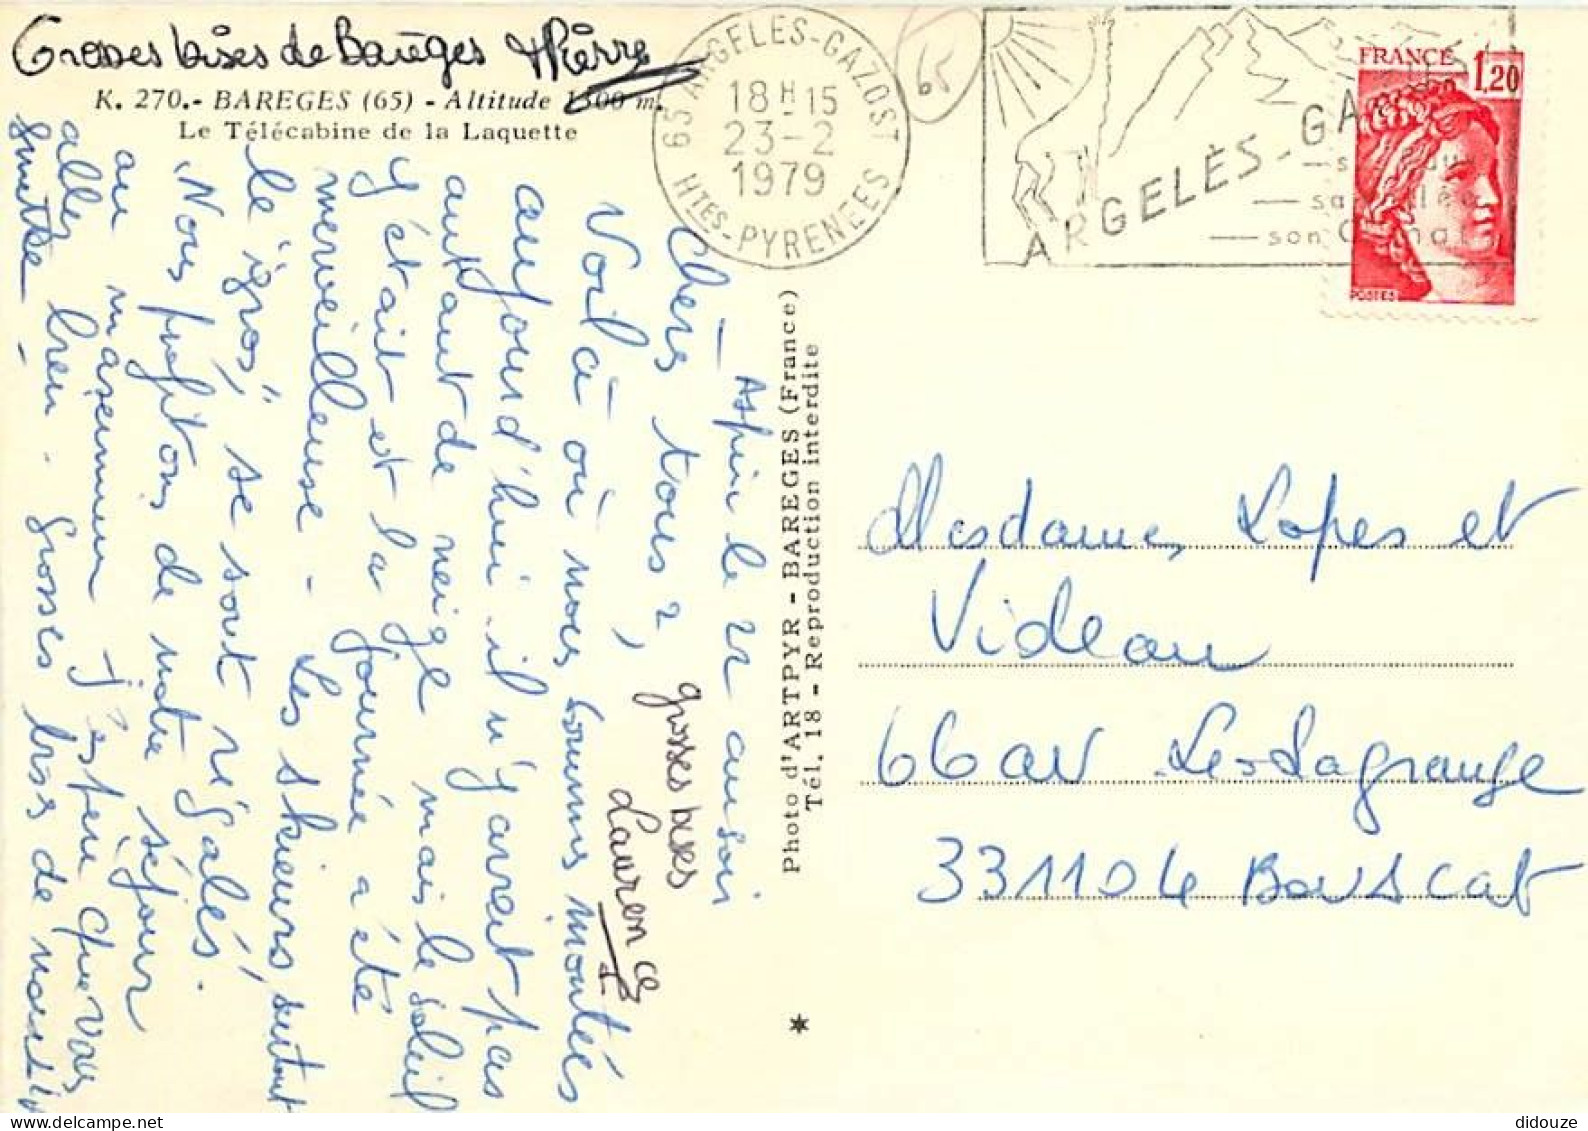 Grosses bises de Barèges Pierre
K. 270.- BAREGES (65) - Altitude 1300 m.
Le Télécabine de la Laquette
65 ARGELES-GAZOST
18H15
23-2
1979
HTES-PYRENEES
65
ARGELÈS-GA
son
FRANCE
1,20
POSTES
Aspin le 22 au soir
Chers tous 2,
Voilà où nous sommes montés
aujourd'hui. il n'y avait pas
autant de neige mais le soleil
y était et la journée a été
merveilleuse - Les skieurs, surtout
le "gros", se sont régalés.
Nous profitons de notre séjour
au maximum J'espère que vous
allez bien. Grosses bises de nous
grosses bises
Laurence
Photo d'ARTPYR - BAREGES (France)
Tél. 18 - Reproduction interdite
Mesdames Lopes et
Videau
66 av Les Lagrange
33110 Le Bouscat
didouze